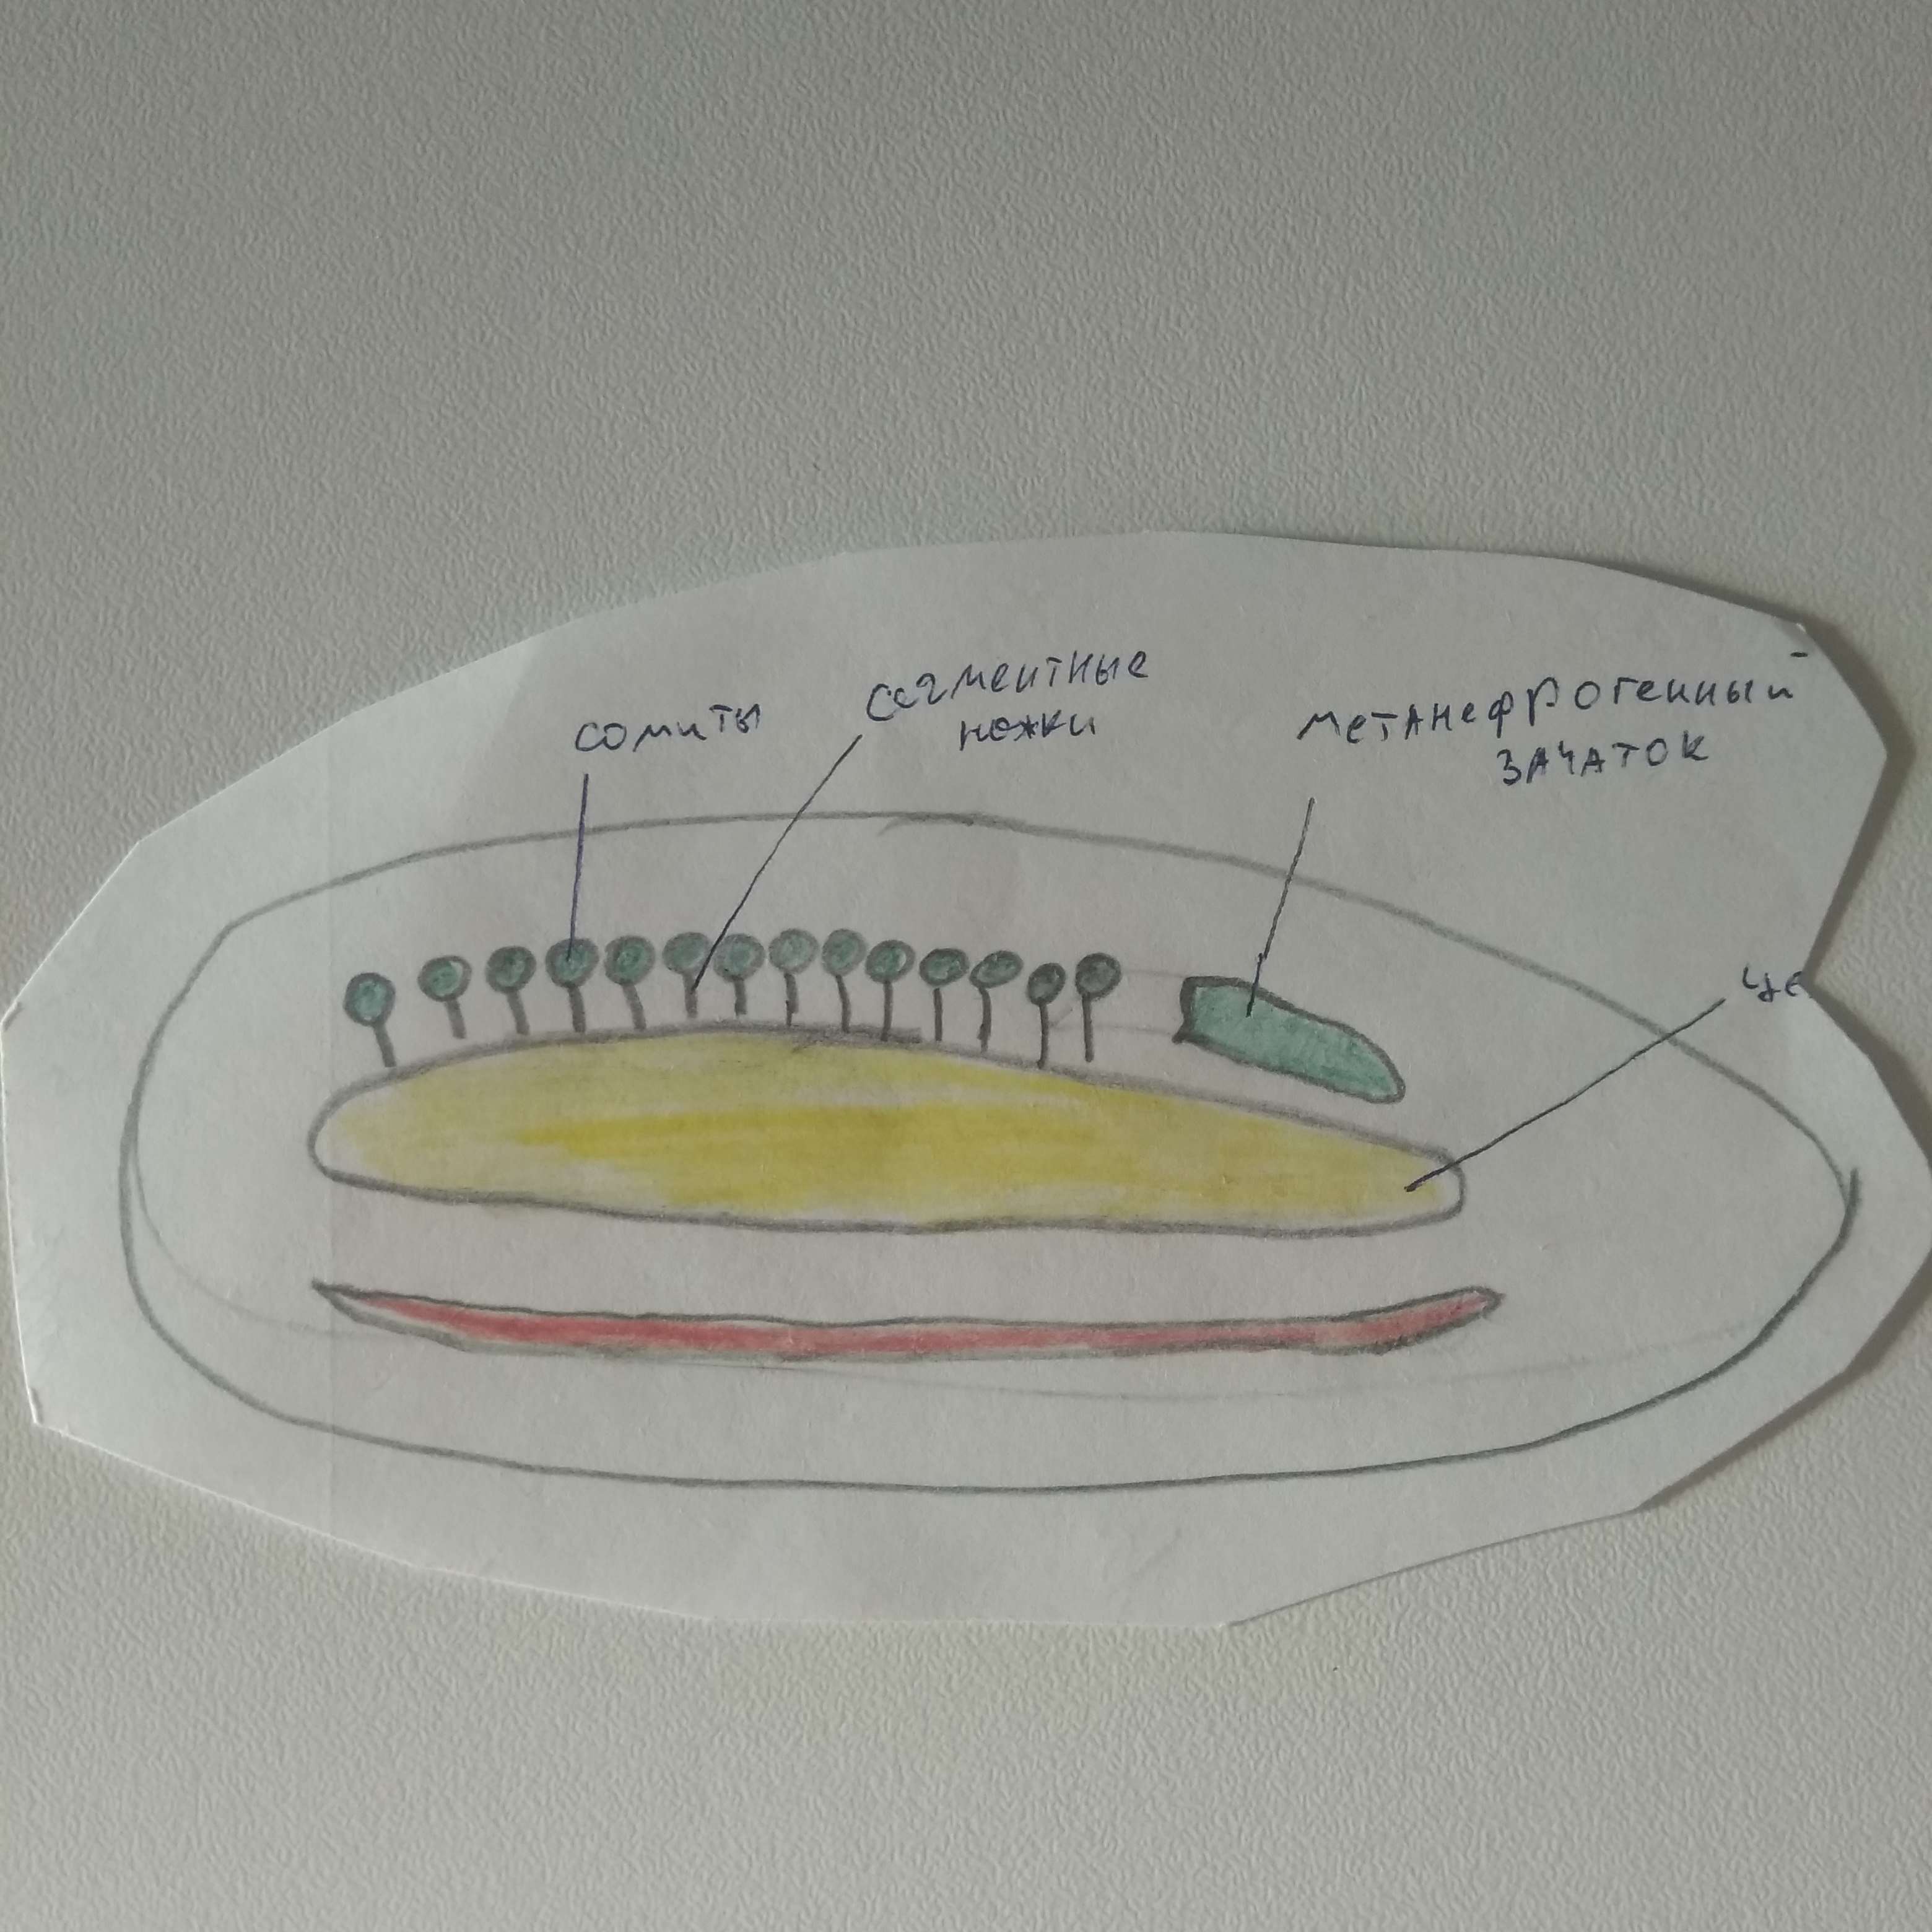 сомиты
сегментные
ножки
метанефрогенный
зачаток
це